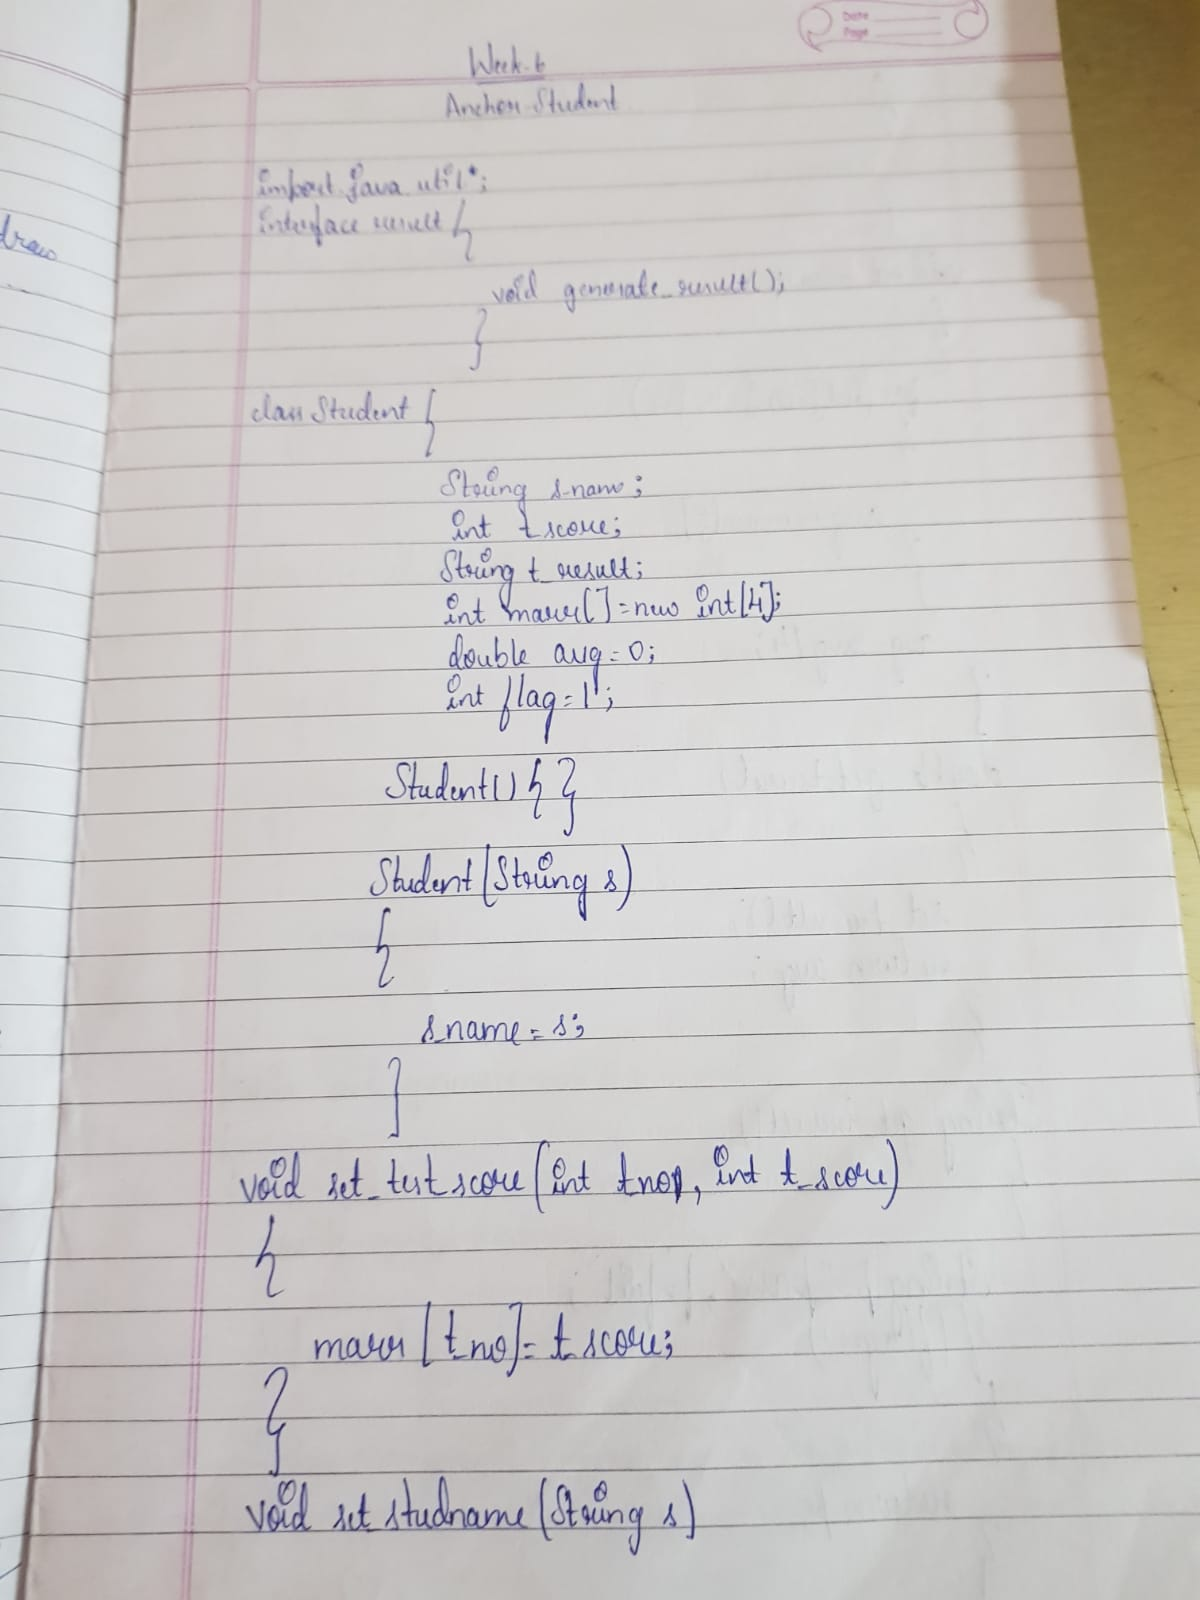 Date
Page
Week-6
Anchor Student
import java util*;
interface result {
void generate_result();
}
draw
class Student {
String s-name;
int t score;
String t_result;
int marr[]=new int[4];
double avg=0;
int flag=1;
Student() { }
Student(String s)
{
s_name = s;
}
void set_test score (int tno, int t_score)
{
marr [t_no]= t score;
}
void set_studname (String s)